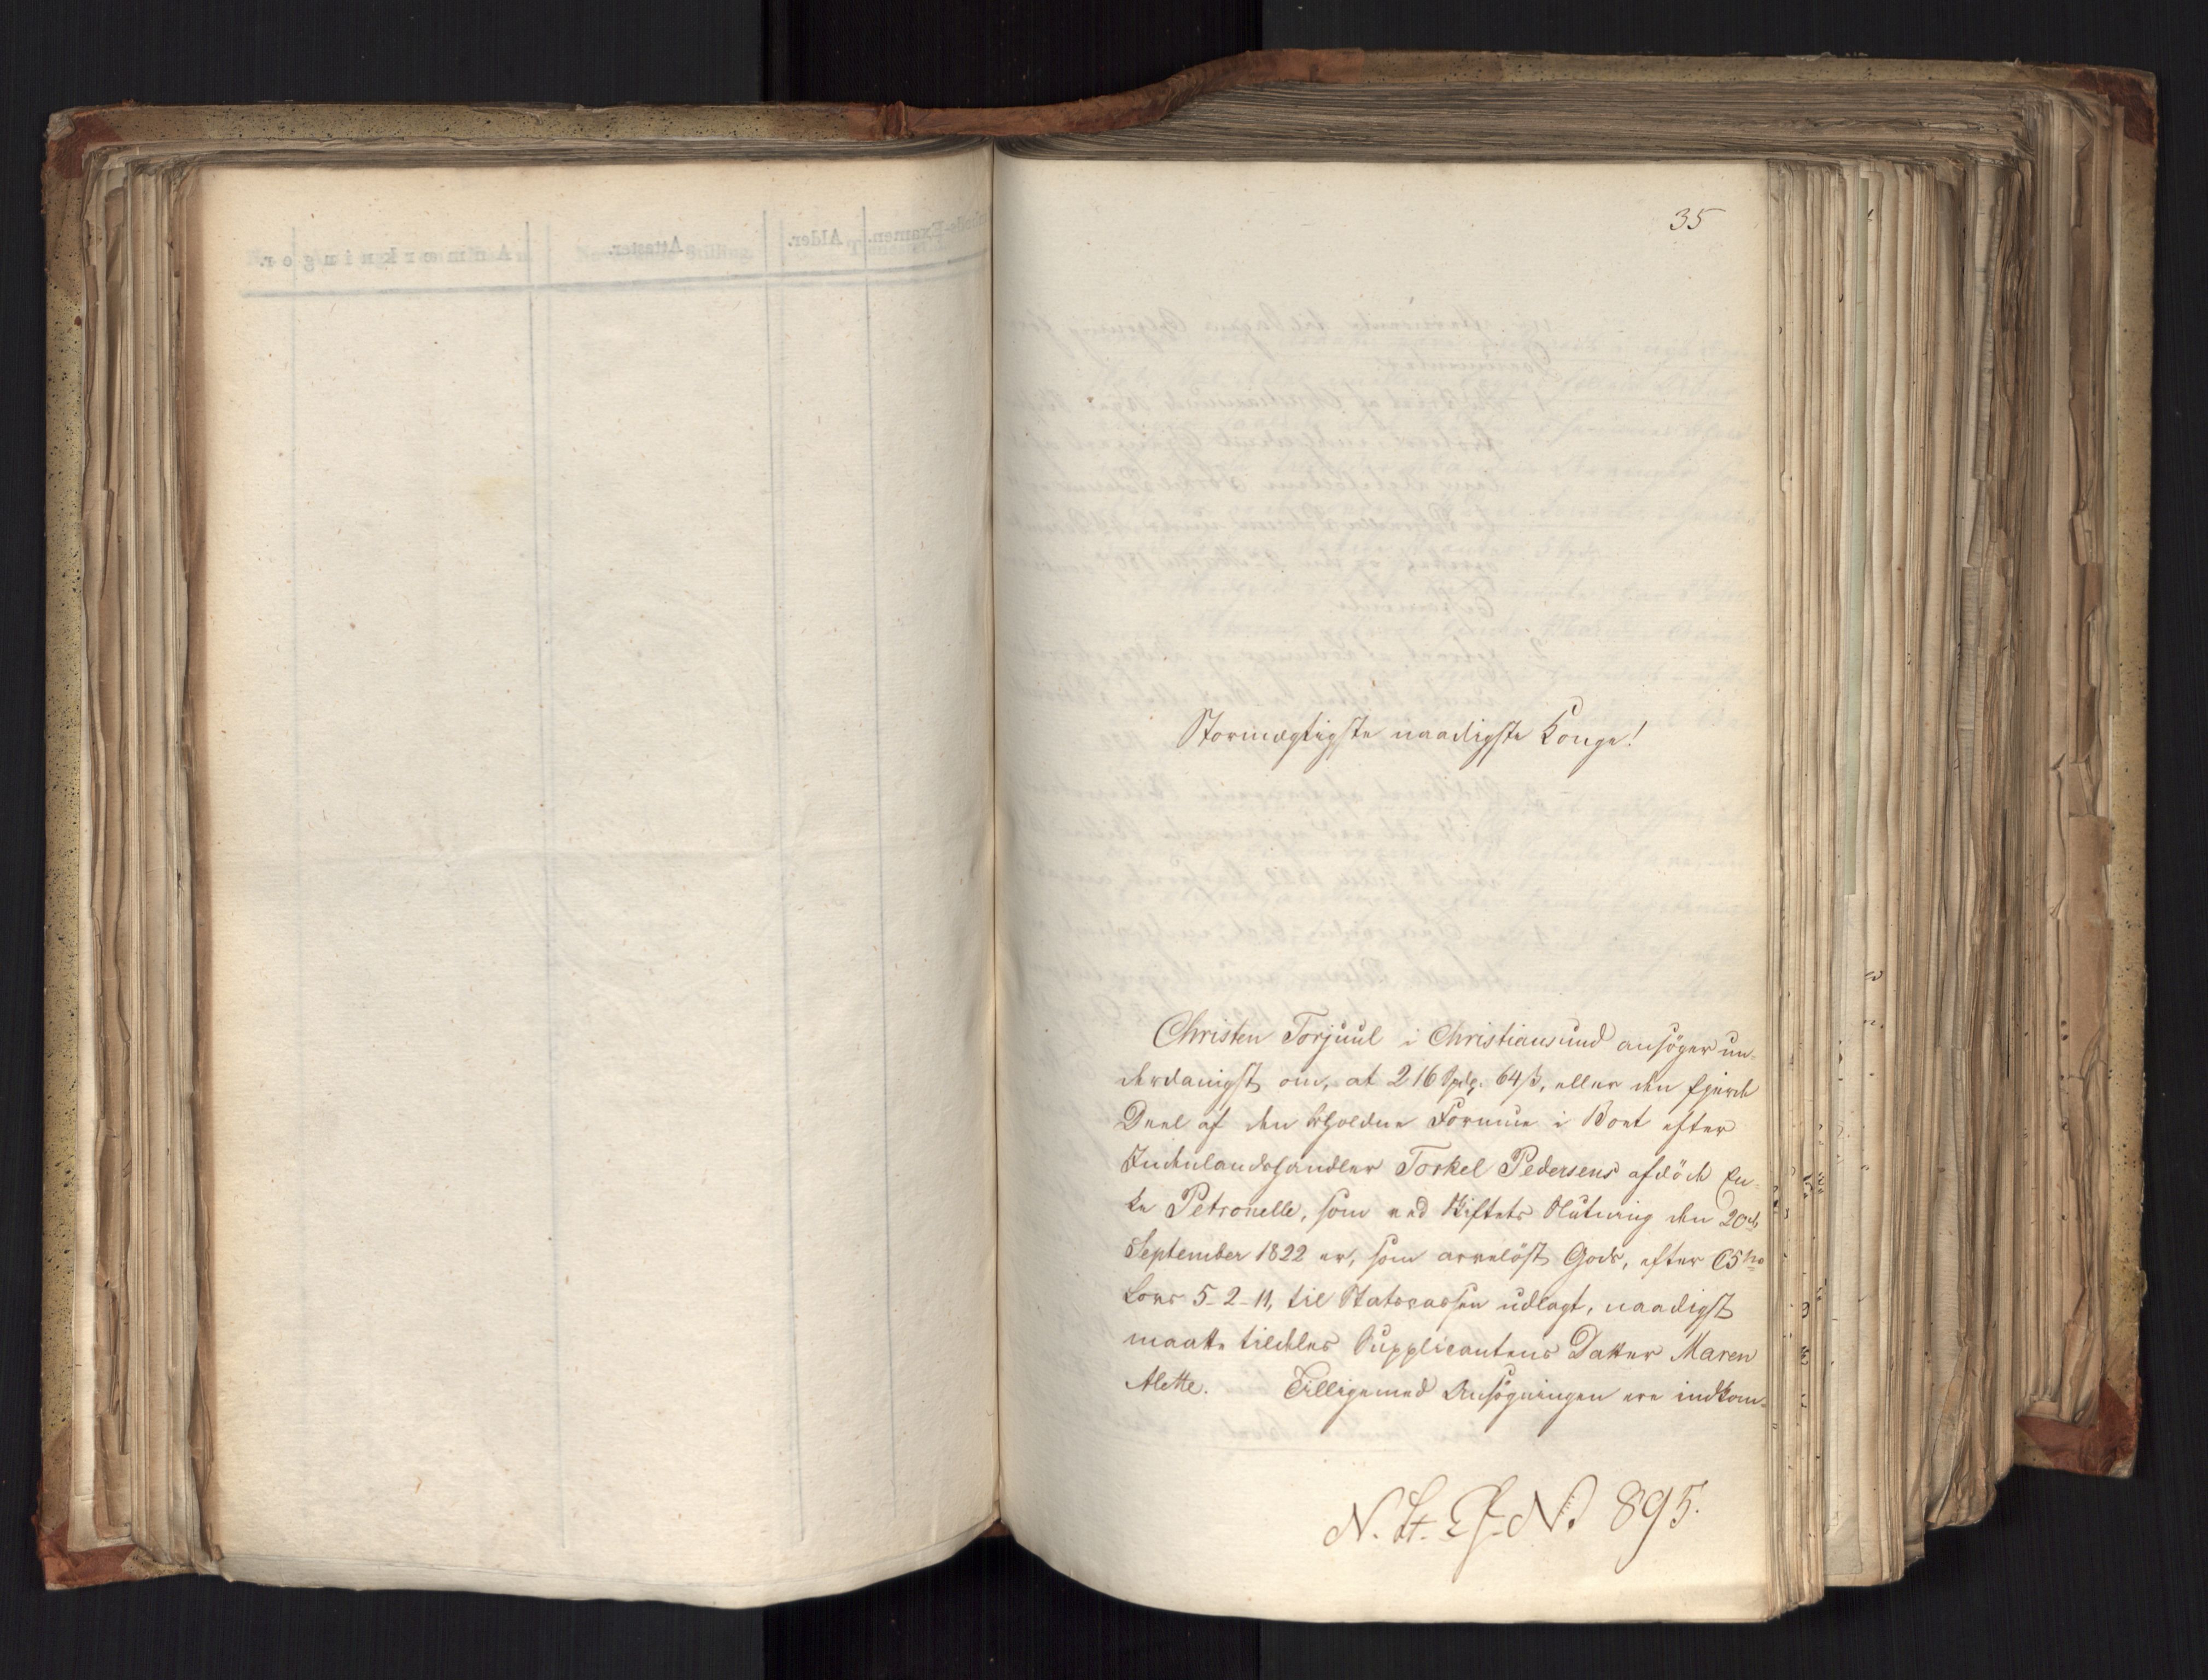 35
Stormægtigste naadigste Konge!
Christen Torjuul i Christiansund ansøger un-
derdanigst om, at 216 Spdlr. 64 ß, eller den fjerde
Deel af den beholdne Formue i Boet efter
Indenlandshandler Torkel Pedersens afdöde En-
ke Petronelle, som ved Skiftets Slutning den 20de
September 1822 er, som arvelöst Gods, efter C5tes
Lovs 5-2-11, til Statscassen udlagt, naadigst
maatte tildeles Supplicantens Datter Maren
Alette. Tilligemed Ansøgningen ere indkom-
N. St. Ex. N. 895.
Anmærkninger.
Attester.
Alder.
Examen.